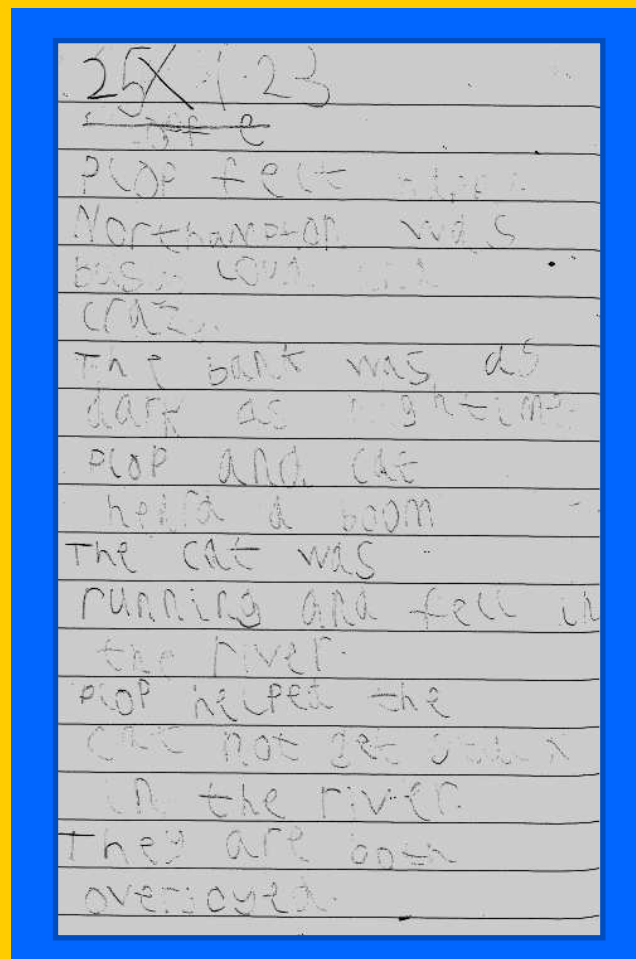 25X1.23
Plop felt
Northampton was
busy loud and
crazy.
The bank was as
dark as nightime
Plop and cat
heard a boom
The cat was
running and fell in
the river.
Plop helped the
cat not get
in the river.
They are both
overjoyed.